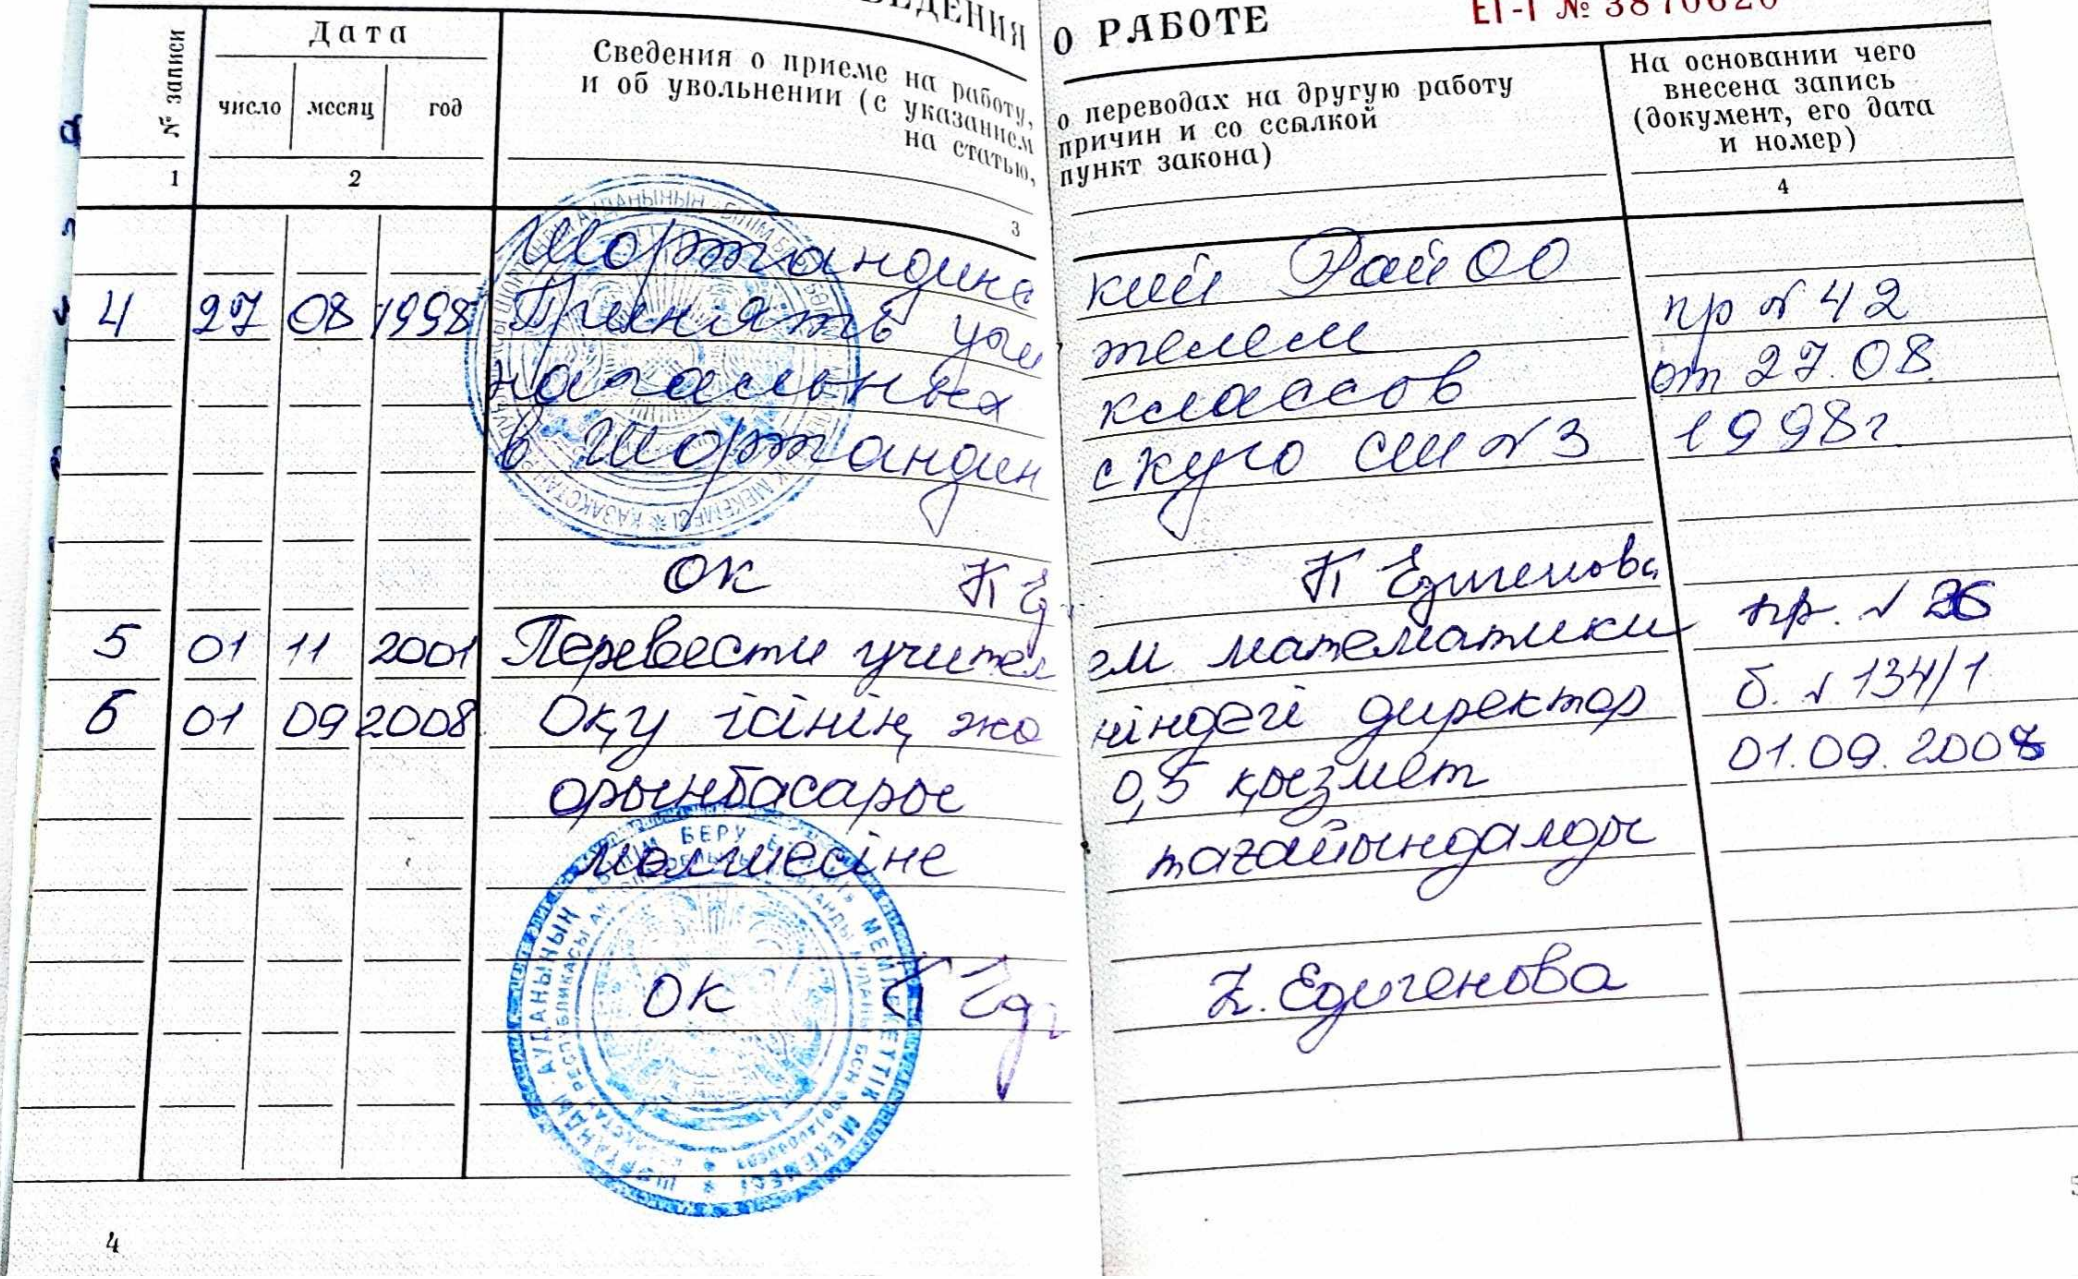 СВЕДЕНИЯ О РАБОТЕ
ЕТ-I № 3870620
№ записи
Дата
число месяц год
Сведения о приеме на работу, о переводах на другую работу
и об увольнении (с указанием причин и со ссылкой
на статью, пункт закона)
На основании чего
внесена запись
(документ, его дата
и номер)
1 2 3 4
Шортандинский РайОО
4 27 08 1998 Принять учителем пр № 42
начальных классов от 27.08.
в Шортандинскую сш № 3 1998г.
ОК К Едигенова
5 01 11 2001 Перевести учителем математики пр. № 26
6 01 09 2008 Оқу ісінің жөніндегі директор б. № 134/1
орынбасары 0,5 қызмет 01.09.2008
мөлшесіне тағайындалды
БІЛІМ БЕРУ
МЕМЛЕКЕТТІК МЕКЕМЕСІ
ШОРТАНДЫ АУДАНЫНЫҢ
ОК К Ед
К. Едигенова
4
5